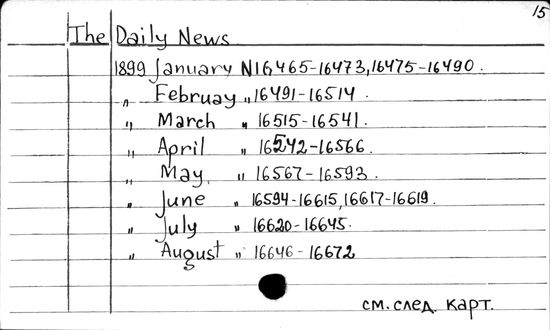 15
The Daily News
1899 January N16465-16473,16475-16490.
" Februay " 16491-16514.
" March " 16515-16541.
" April " 16542-16566.
" May. " 16567-16593.
" June " 16594-16615,16617-16619.
" July " 16620-16645.
" August " 16646-16672
см. след. карт.